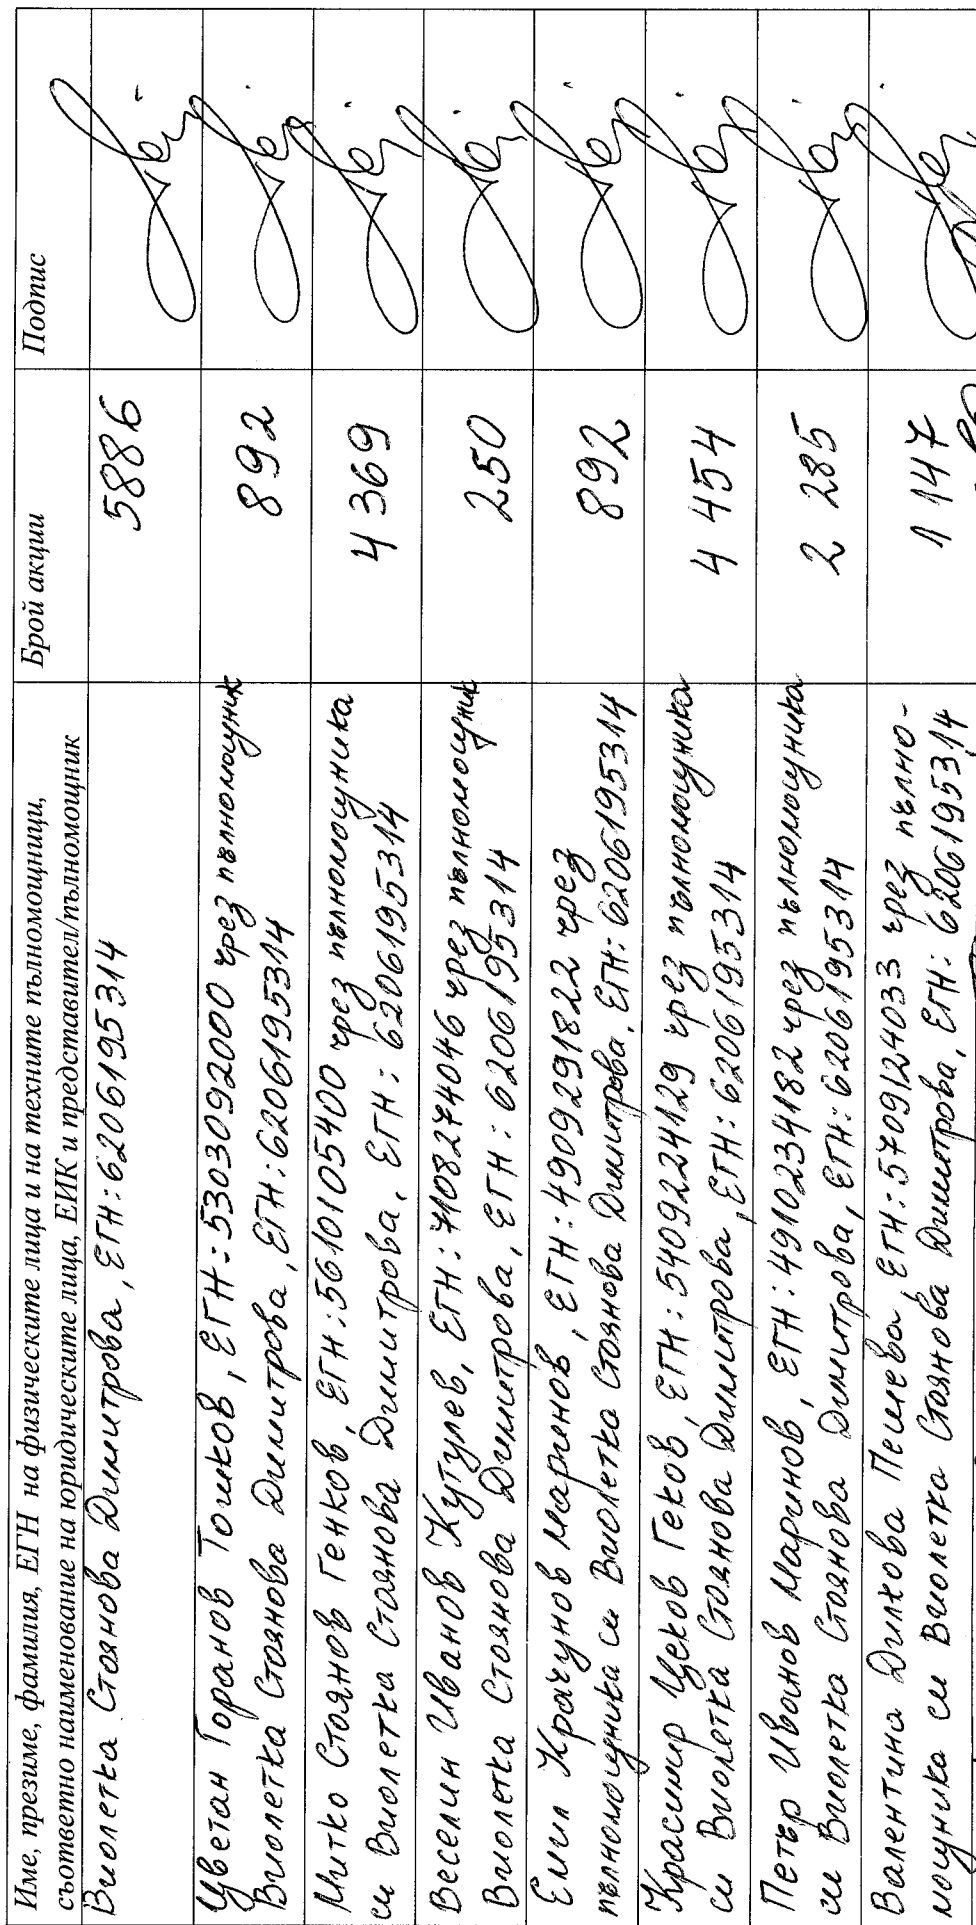 Име, презиме, фамилия, ЕГН на физическите лица и на техните пълномощници,
съответно наименование на юридическите лица, ЕИК и представител/пълномощник
Брой акции
Подпис
Виолетка Стоянова Димитрова, ЕГН:6206195314
5886
Цветан Горанов Тошков, ЕГН:5303092000 чрез пълномощник
Виолетка Стоянова Димитрова, ЕГН:6206195314
892
Митко Стоянов Генков, ЕГН:5610105400 чрез пълномощника
си Виолетка Стоянова Димитрова, ЕГН: 6206195314
4 369
Веселин Иванов Кутулев, ЕГН:7108274046 чрез пълномощник
Виолетка Стоянова Димитрова, ЕГН: 6206195314
250
Емил Крачунов Маринов, ЕГН:4909291822 чрез
пълномощника си Виолетка Стоянова Димитрова, ЕГН:6206195314
892
Красимир Цеков Геков, ЕГН:5409224129 чрез пълномощника
си Виолетка Стоянова Димитрова, ЕГН:6206195314
4 454
Петър Иванов Маринов, ЕГН:4910234182 чрез пълномощника
си Виолетка Стоянова Димитрова, ЕГН:6206195314
2 285
Валентина Дилкова Пешева, ЕГН:5709124033 чрез пълно-
мощника си Виолетка Стоянова Димитрова, ЕГН: 6206195314
1 147